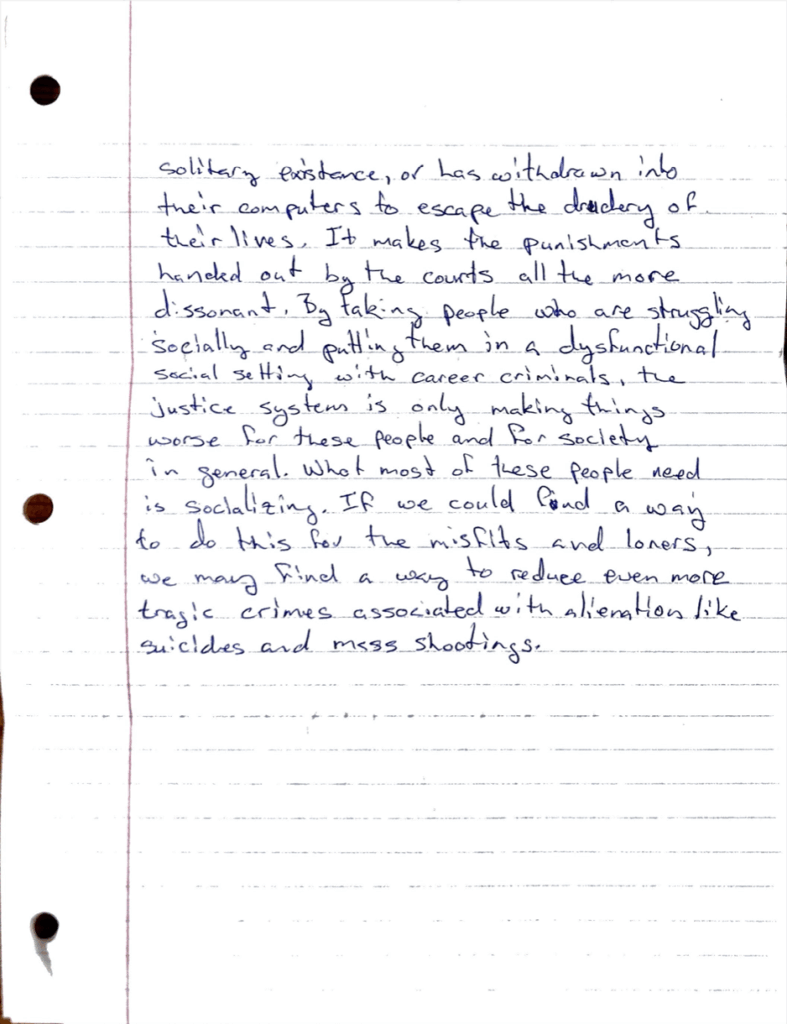 solitary existence, or has withdrawn into
their computers to escape the drudery of
their lives. It makes the punishments
handed out by the courts all the more
dissonant. By taking people who are struggling
socially and putting them in a dysfunctional
social setting with career criminals, the
justice system is only making things
worse for these people and for society
in general. What most of these people need
is socializing. If we could find a way
to do this for the misfits and loners,
we may find a way to reduce even more
tragic crimes associated with alienation like
suicides and mass shootings.